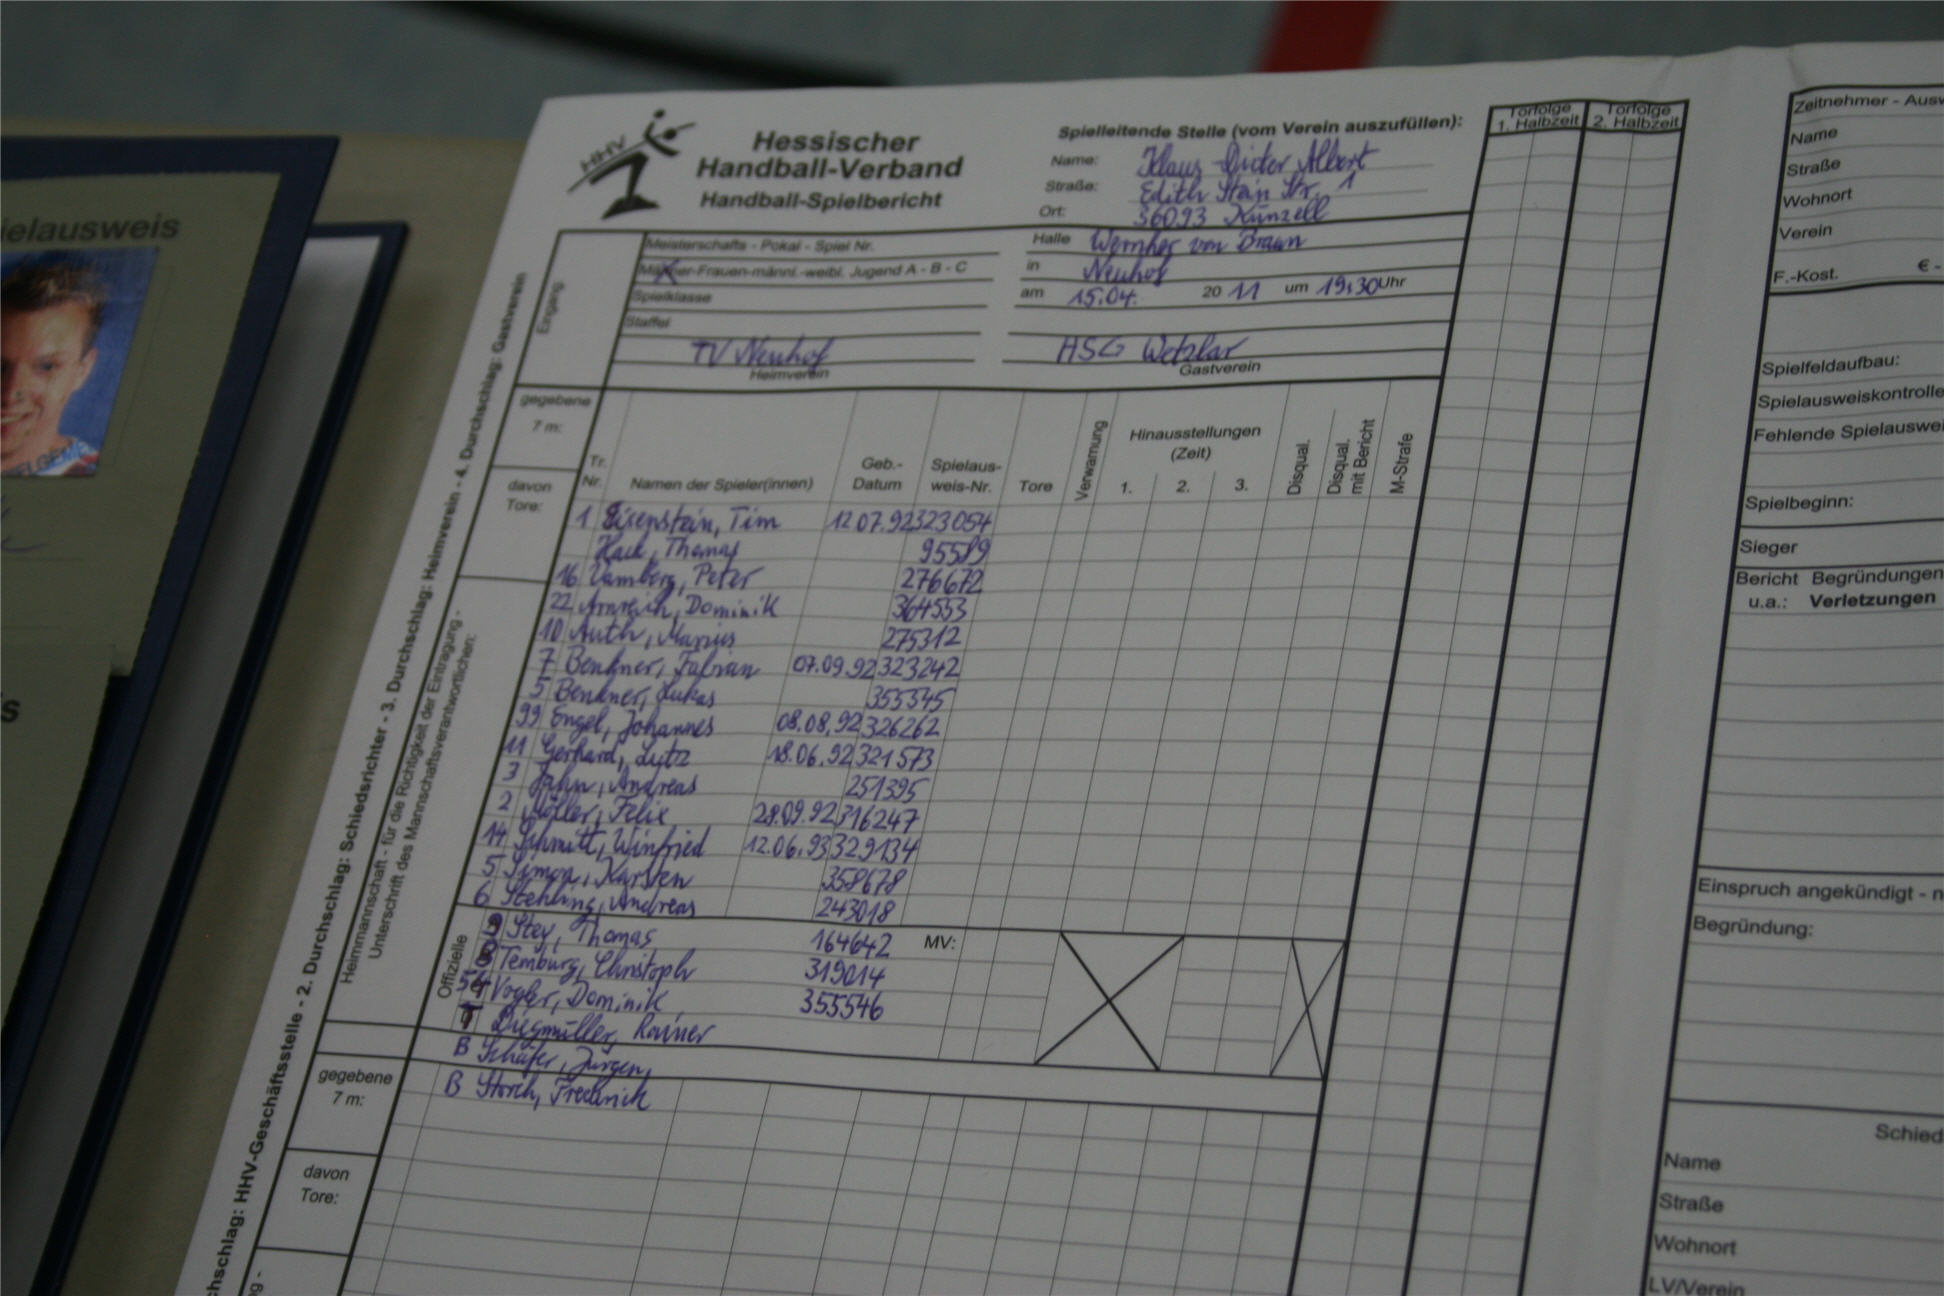 ielausweis
ELGEME
s
HHV
Hessischer
Handball-Verband
Handball-Spielbericht
Spielleitende Stelle (vom Verein auszufüllen):
Name: Klaus-Dieter Albert
Straße: Edith Stein Str. 1
Ort: 36093 Künzell
Eingang:
Meisterschafts - Pokal - Spiel Nr.
Männer-Frauen-männl.-weibl. Jugend A - B - C
Spielklasse
Staffel
Halle Wernher von Braun
in Neuhof
am 15.04. 20 11 um 19:30 Uhr
TV Neuhof
Heimverein
HSG Wetzlar
Gastverein
Torfolge
1. Halbzeit
Torfolge
2. Halbzeit
gegebene
7 m:
davon
Tore:
Tr.
Nr. Namen der Spieler(innen) Geb.-
Datum Spielaus-
weis-Nr. Tore Verwarnung Hinausstellungen
(Zeit)
1. 2. 3. Disqual. Disqual.
mit Bericht M-Strafe
1 Eisenstein, Tim 12.07.92 323054
Hack, Thomas 95589
16 Vamberg, Peter 276672
22 Arnreich, Dominik 364553
10 Auth, Marius 275312
7 Benkner, Fabian 07.09.92 323242
5 Benkner, Lukas 355345
99 Engel, Johannes 08.08.92 326262
11 Gerhard, Lutz 18.06.92 321573
3 Jahn, Andreas 251395
2 Möller, Felix 28.09.92 316247
14 Schmitt, Winfried 12.06.93 329134
5 Simon, Karsten 358678
6 Stehling, Andreas 243018
Offizielle
9 Stey, Thomas 164642 MV:
8 Temburg, Christoph 319014
Vogler, Dominik 355546
Diegmüller, Rainer
B Schäfer, Jürgen
B Storch, Frederick
gegebene
7 m:
davon
Tore:
Heimmannschaft - für die Richtigkeit der Eintragung -
Unterschrift des Mannschaftsverantwortlichen:
chschlag: HHV-Geschäftsstelle - 2. Durchschlag: Schiedsrichter - 3. Durchschlag: Heimverein - 4. Durchschlag: Gastverein
ng -
Zeitnehmer - Ausw
Name
Straße
Wohnort
Verein
F.-Kost. € -
Spielfeldaufbau:
Spielausweiskontrolle
Fehlende Spielauswei
Spielbeginn:
Sieger
Bericht Begründungen
u.a.: Verletzungen
Einspruch angekündigt - n
Begründung:
Schied
Name
Straße
Wohnort
LV/Verein